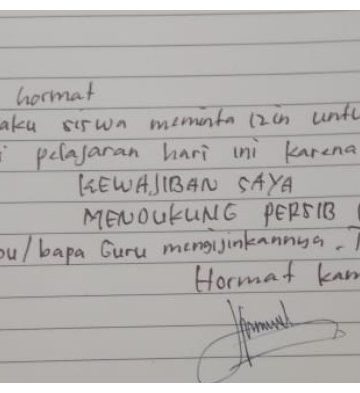 hormat
aku siswa meminta izin untu
i pelajaran hari ini karena
KEWAJIBAN SAYA
MENDUKUNG PERSIB
ou/bapa Guru mengijinkannya. T
Hormat kam